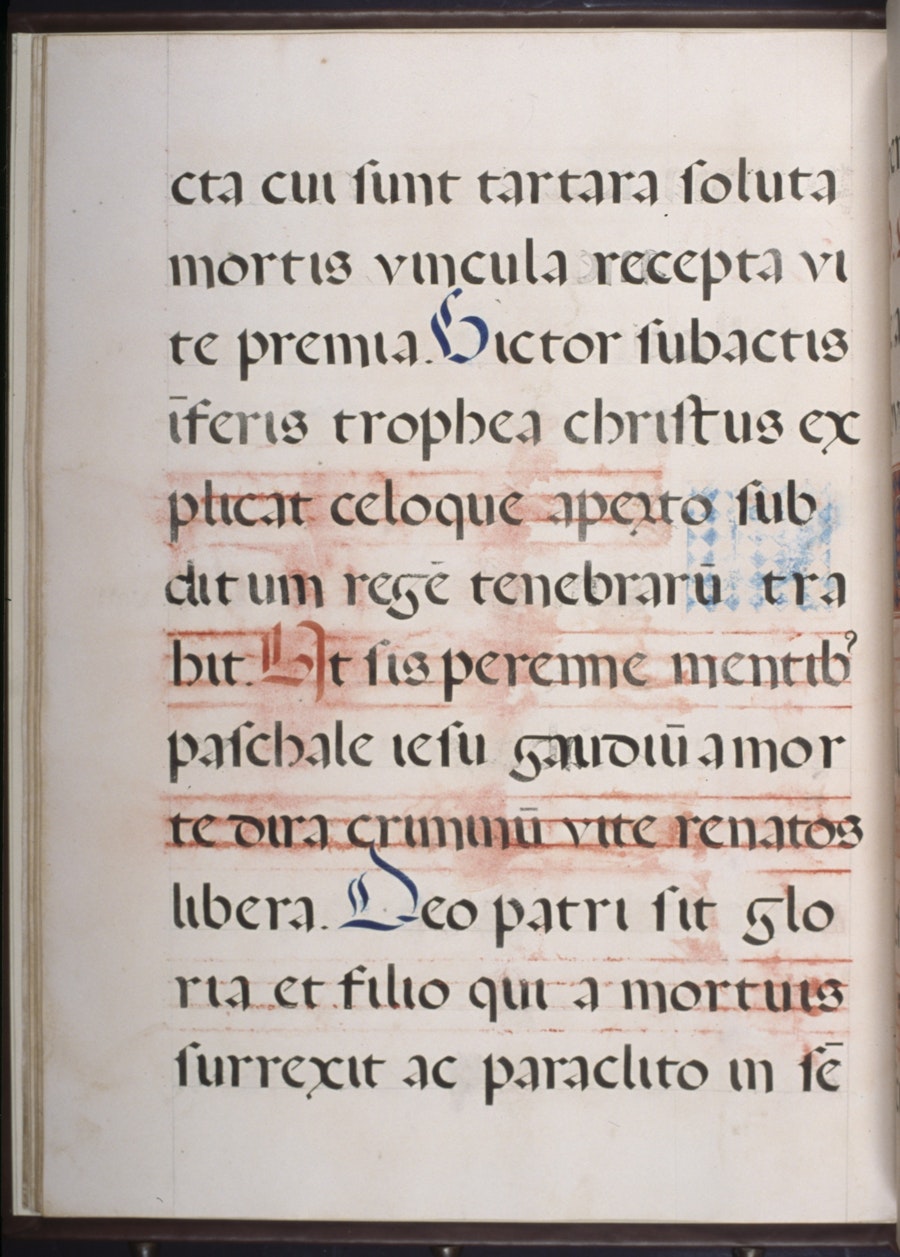 cta cui ſunt tartara ſoluta
mortis vincula recepta vi
te premia. Victor ſubactis
īferis trophea chriſtus ex
plicat celoque aperto ſub
ditum regē tenebrarū tra
hit. Ut ſis perenne mentibꝰ
paſchale ieſu gaudiū a mor
te dira criminū vite renatos
libera. Deo patri ſit glo
ria et filio qui a mortuis
ſurrexit ac paraclito in ſē